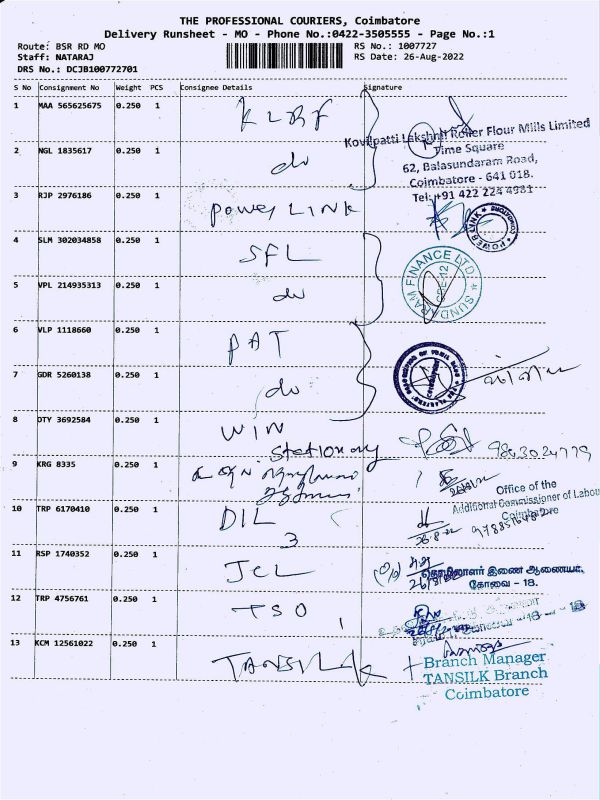 THE PROFESSIONAL COURIERS, Coimbatore
Delivery Runsheet - MO - Phone No.:0422-3505555 - Page No.:1
Route: BSR RD MO
Staff: NATARAJ
DRS No.: DCJB100772701
RS No.: 1007727
RS Date: 26-Aug-2022
S No Consignment No Weight PCS Consignee Details Signature
1 MAA 565625675 0.250 1 KLRF
Kovilpatti Lakshmi Roller Flour Mills Limited
Time Square
2 NGL 1835617 0.250 1 do
62, Balasundaram Road,
Coimbatore - 641 018.
Tel: +91 422 224 4981
3 RJP 2976186 0.250 1 Power LINK
POWERLINK
4 SLM 302034858 0.250 1 SFL
SUNDARAM FINANCE LTD
5 VPL 214935313 0.250 1 do
6 VLP 1118660 0.250 1 PAT
7 GDR 5260138 0.250 1 do
8 DTY 3692584 0.250 1 WIN
Stationary
9 KRG 8335 0.250 1
Office of the
Additional Commissioner of Labour
Coimbatore
10 TRP 6170410 0.250 1 DIL
3
11 RSP 1740352 0.250 1 JCL
தொழிலாளர் இணை ஆணையர்,
கோவை - 18.
12 TRP 4756761 0.250 1 TSO
13 KCM 12561022 0.250 1 TANSILK
Branch Manager
TANSILK Branch
Coimbatore